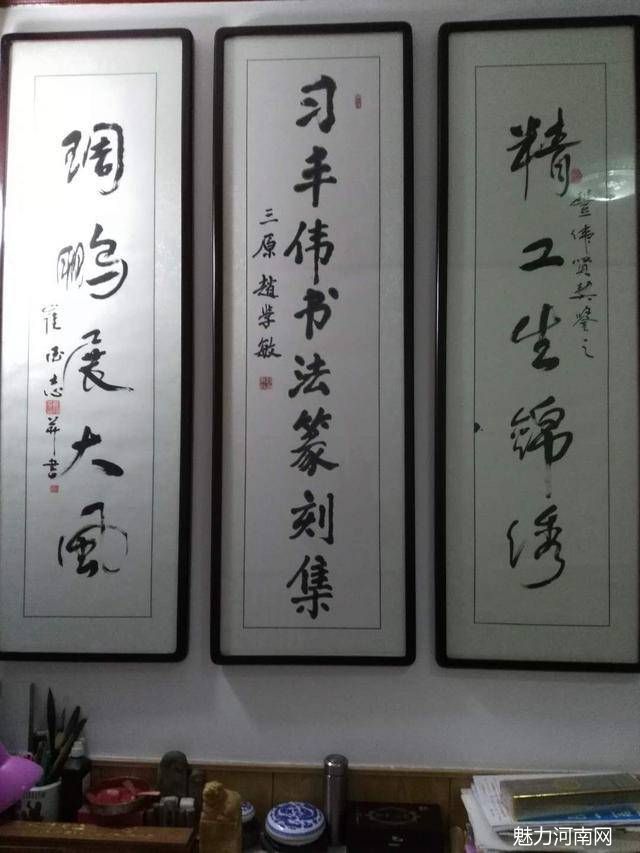 精工生锦绣
豐伟贤契鉴之
习丰伟书法篆刻集
三原趙学敏
琱鹏展大风
崔
志
并書
魅力河南网